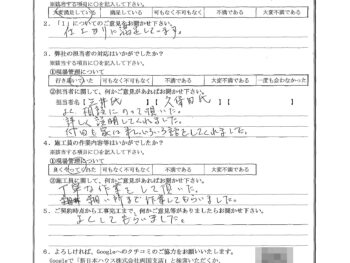 ※該当する項目に○を記入して下さい。
大変満足している 満足している 可もなく不可もなく 不満である 大変不満である
2.「1」についてのご意見をお聞かせ下さい。
仕上りに満足してます。
3. 弊社の担当者の対応はいかがでしたか?
※該当する項目に○を記入して下さい。
①現場管理について
行き届いていた 可もなく不可もなく 不満である 大変不満である 一度も会わなかった
②担当者に関して、何かご意見があればお聞かせ下さい。
担当者名【三井氏 】【 久保田氏
よく相談にのって頂いた。
詳しく説明してくれました。
してくれました。
4. 施工員の作業内容等はいかがでしたか?
※該当する項目に○を記入して下さい。
①現場管理について
良くやってくれた 可もなく不可もなく 不満である 大変不満である
②施工員に関して、何かご意見があればお聞かせ下さい。
丁寧な作業をして頂いた。
細い所まで作業してもらいました。
5. ご契約時点から工事完工まで、何かご意見等がありましたらお聞かせ下さい。
よくしてもらいました。
6. よろしければ、Googleへのクチコミのご協力をお願いいたします。
Googleで「新日本ハウス株式会社両国支店」と検索いただくか、